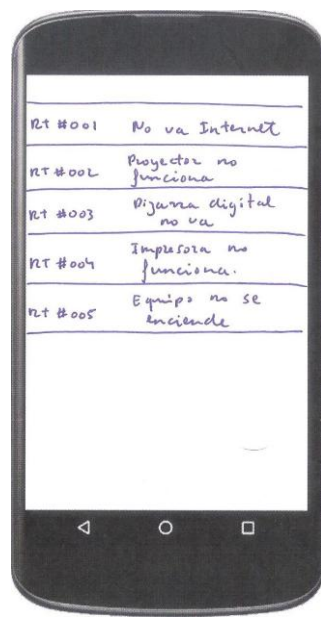 RT #001 No va Internet
RT #002 Proyector no
funciona
RT #003 Pizarra digital
no va
RT #004 Impresora no
funciona.
RT #005 Equipo no se
enciende